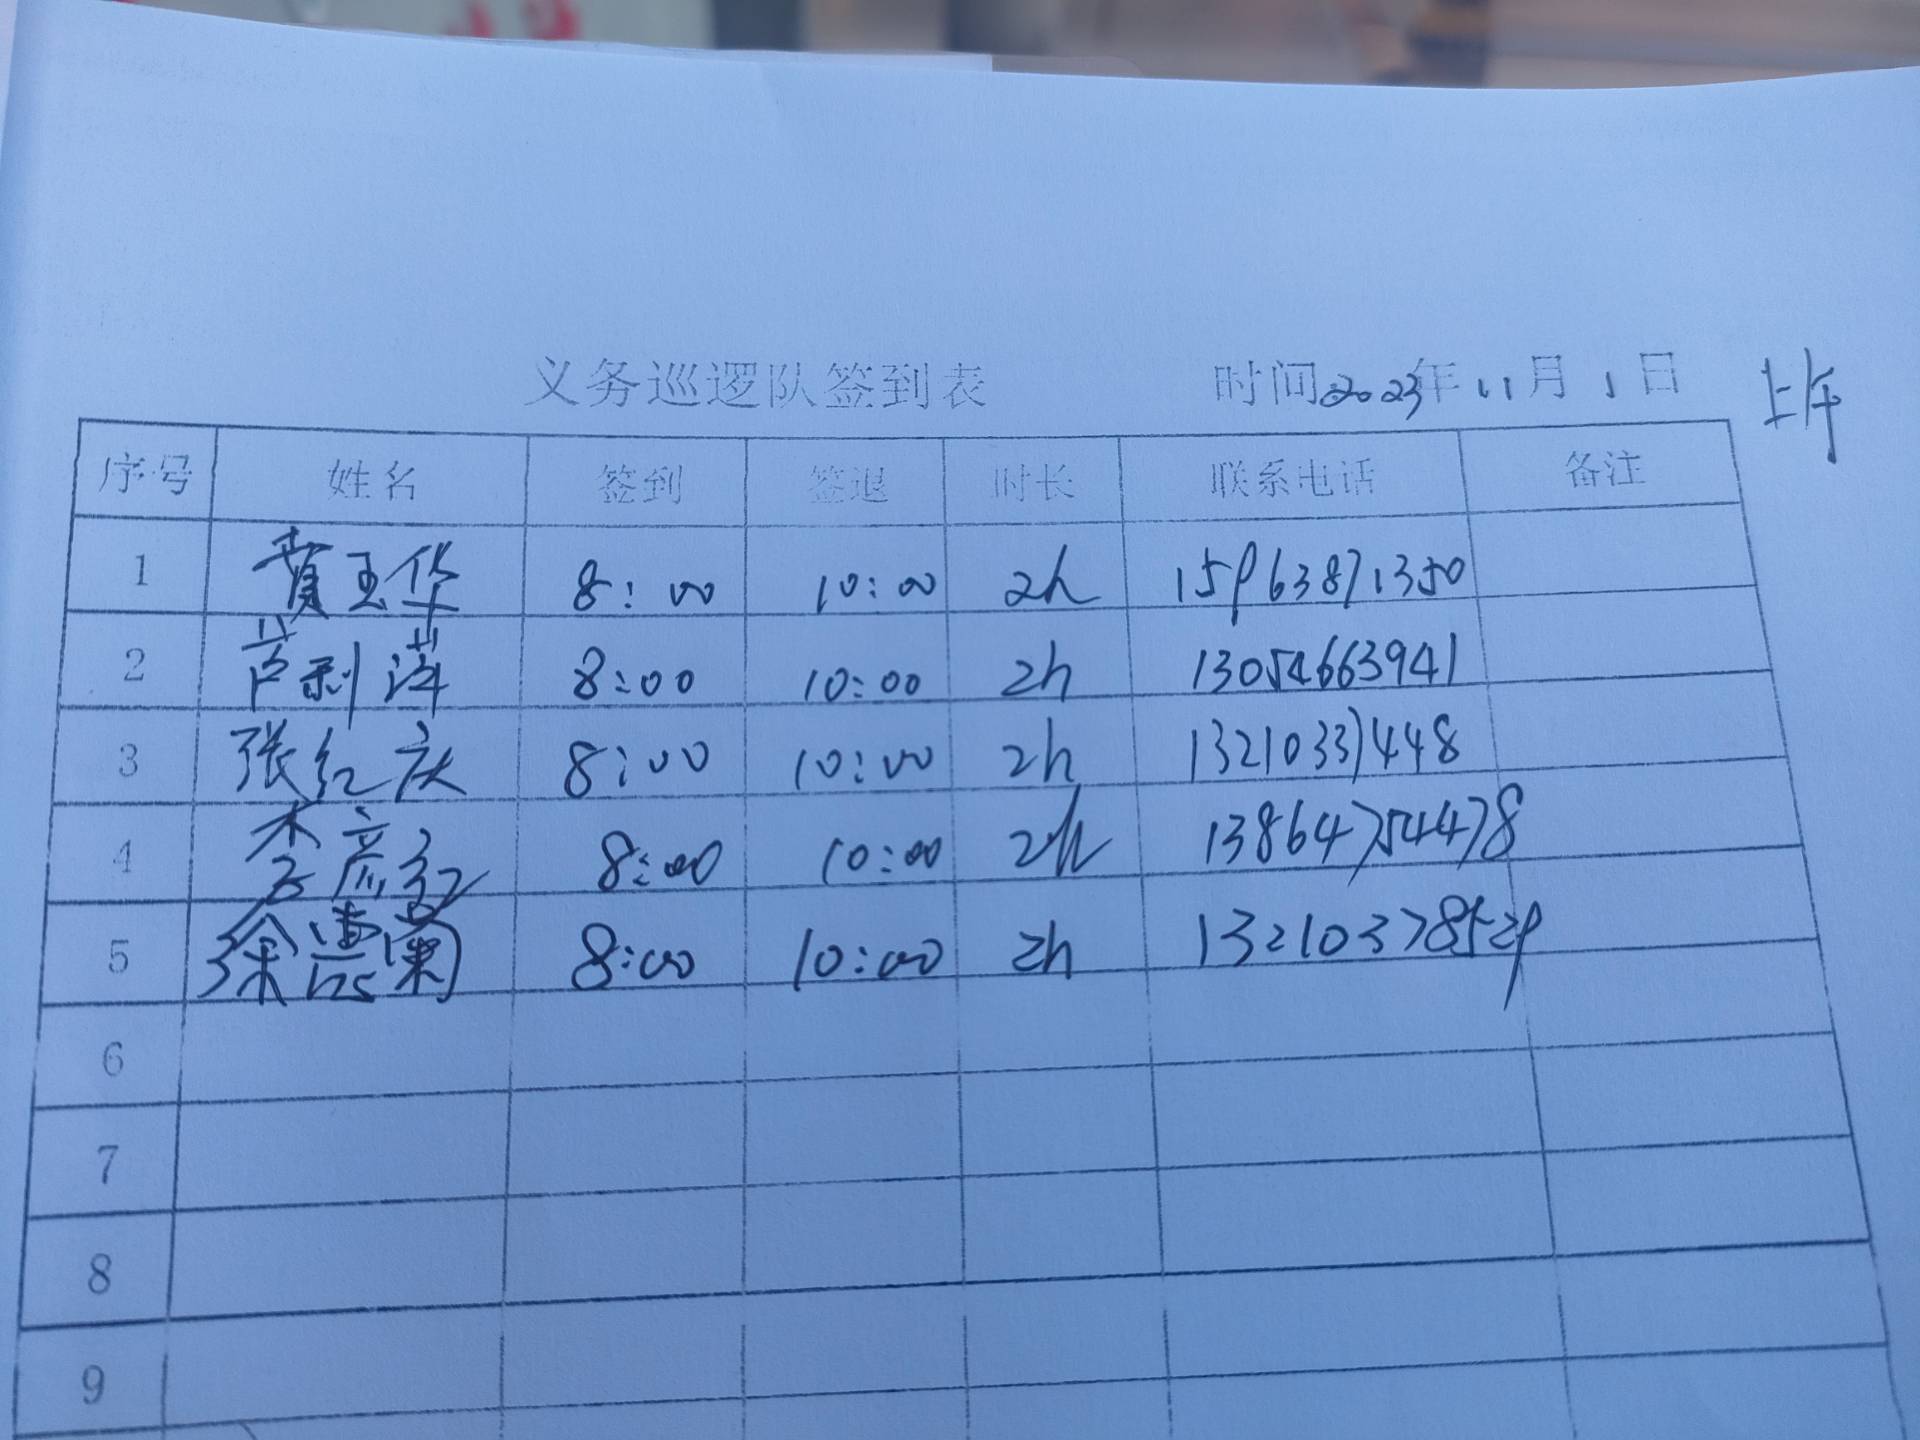 义务巡逻队签到表 时间2023年11月1日 上午
序号 姓名 签到 签退 时长 联系电话 备注
1 贾玉华 8:00 10:00 2h 15963871350
2 芦利萍 8:00 10:00 2h 13054663941
3 张红庆 8:00 10:00 2h 13210337448
4 李彦红 8:00 10:00 2h 13864754478
5 徐 兰 8:00 10:00 2h 13210378529
6
7
8
9